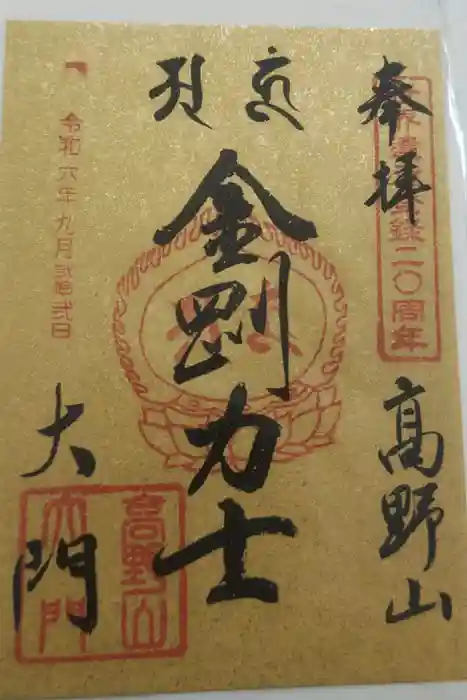 奉拝
世界遺産登録二〇周年
高野山
金剛力士
大門
高野山
大門
令和六年九月弐拾弐日